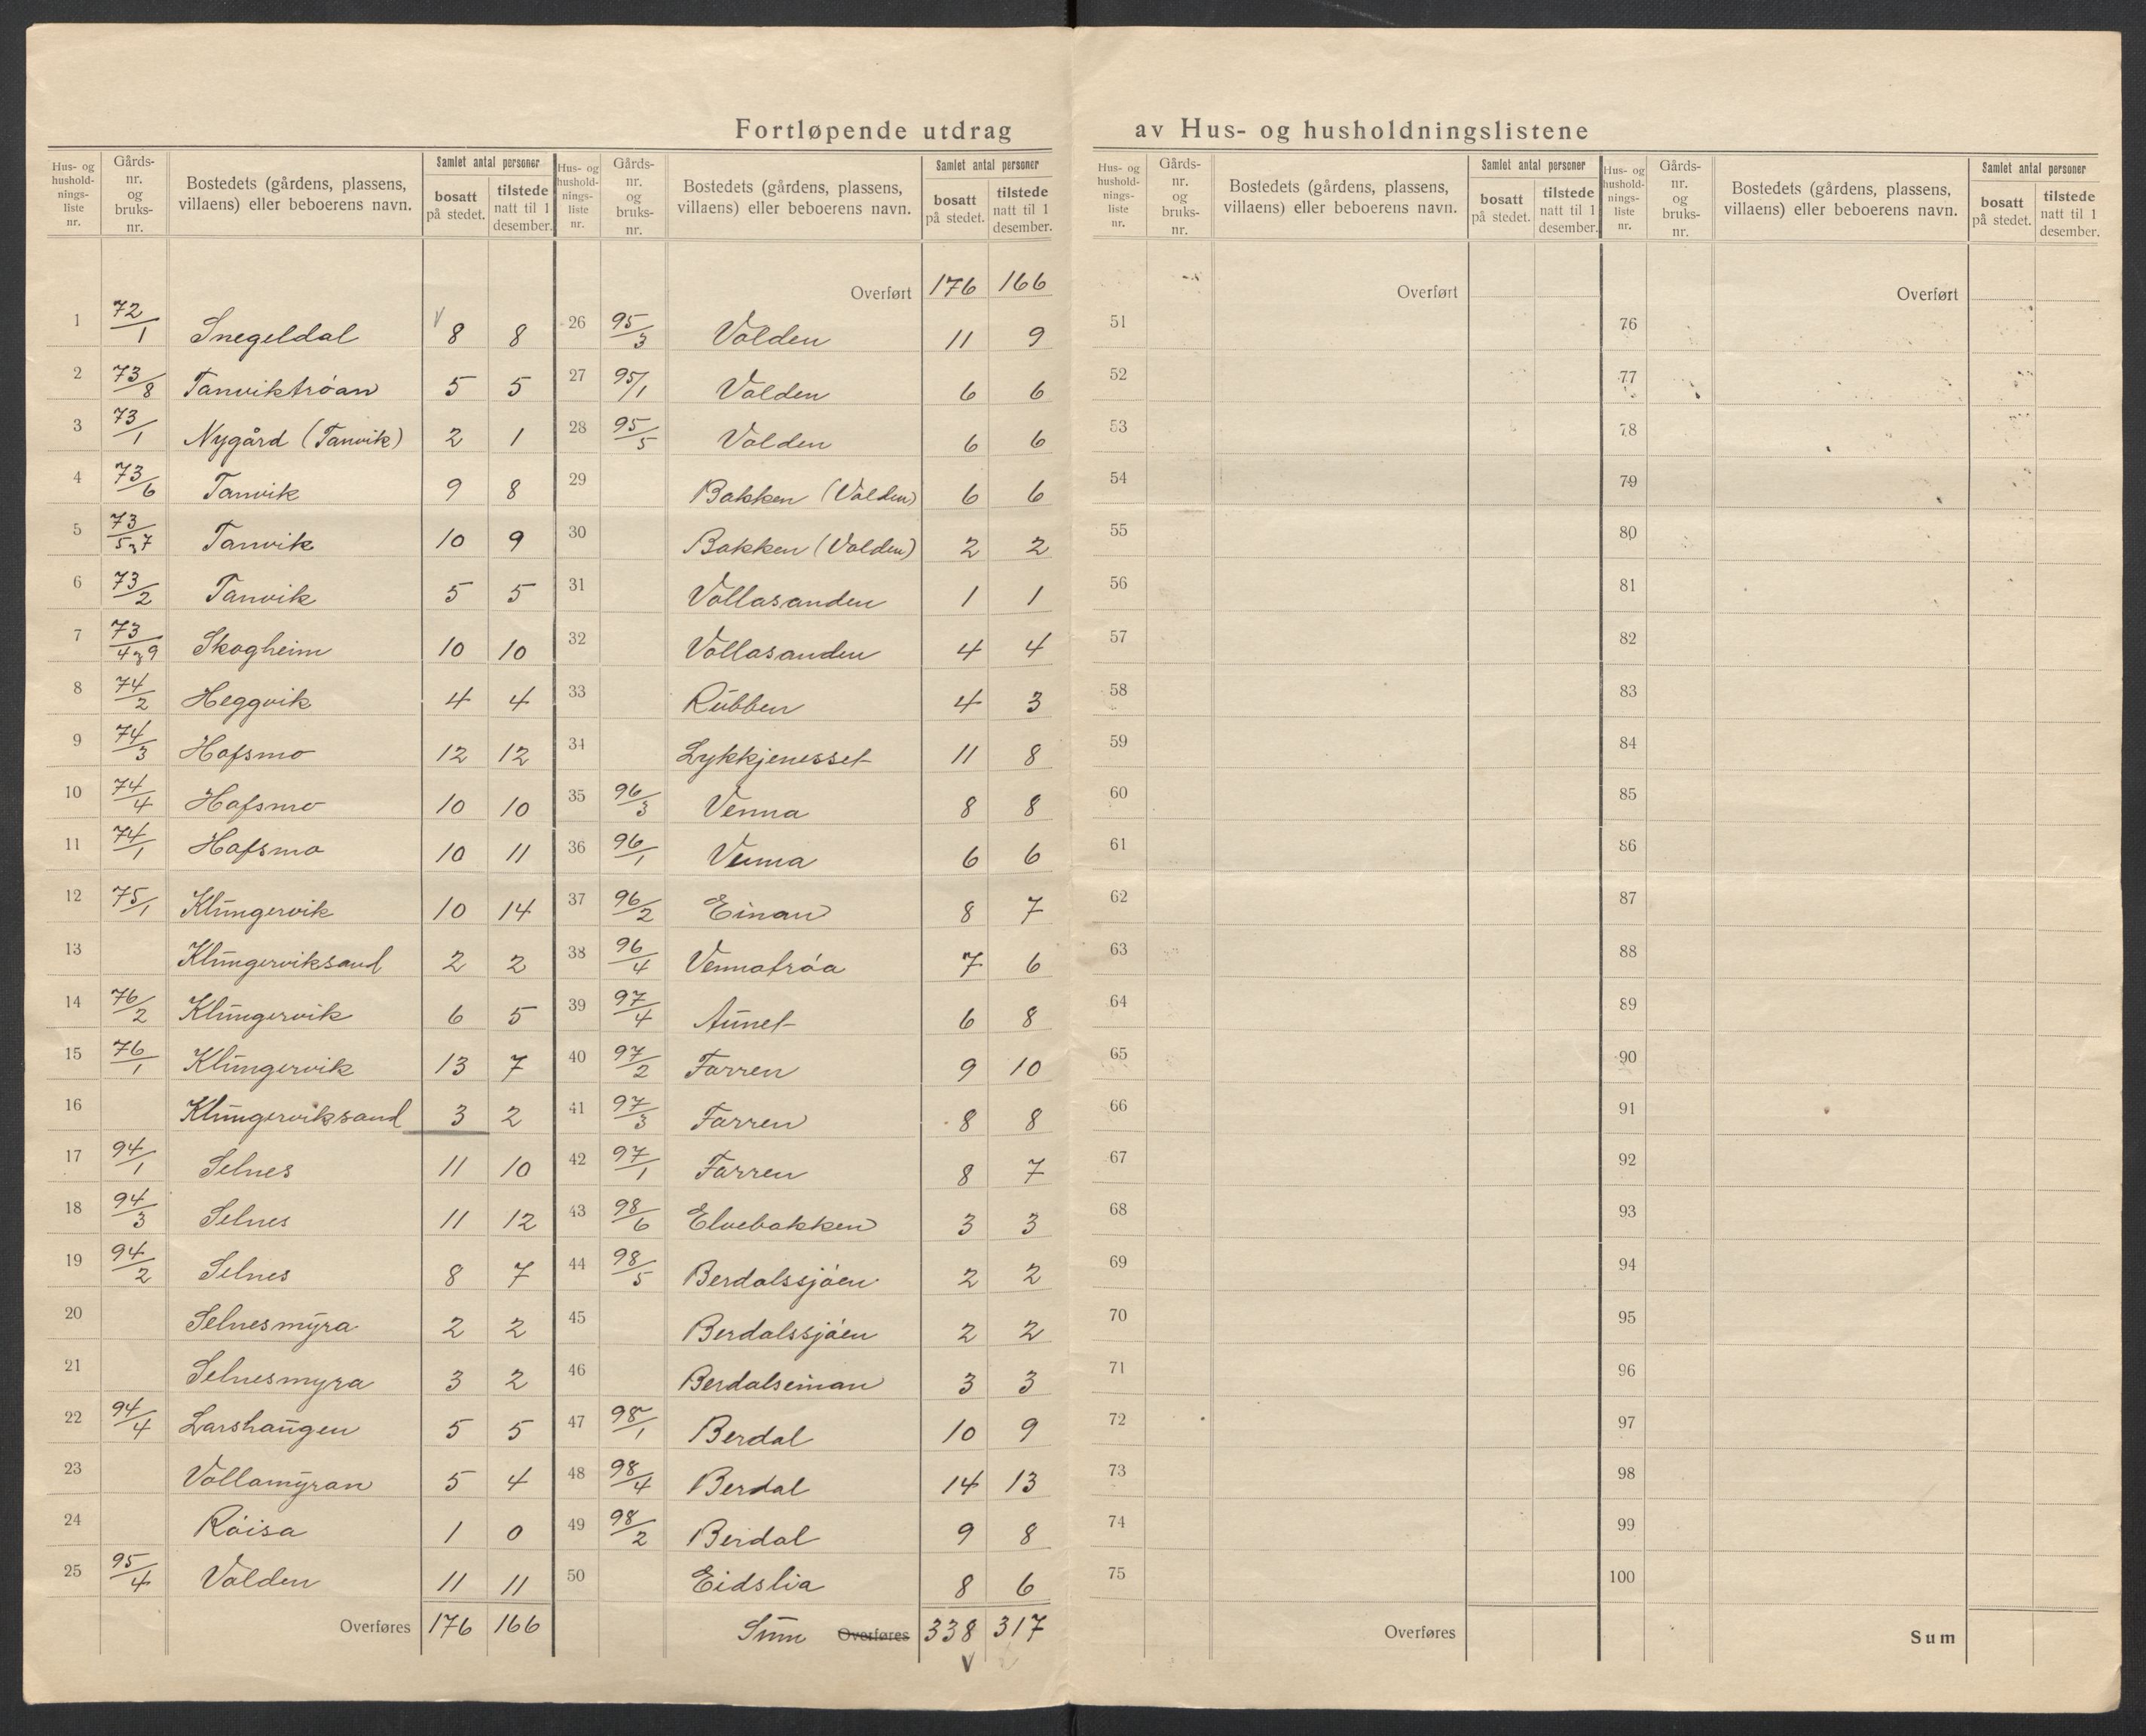 Fortløpende utdrag av Hus- og husholdningslistene
Hus- og husholdningsliste nr. | Gårdsnr. og bruksnr. | Bostedets (gårdens, plassens, villaens) eller beboerens navn. | Samlet antal personer bosatt på stedet. | tilstede natt til 1 desember.
1 72/1 Snegeldal 8 8
2 73/8 Tanviktrøan 5 5
3 73/1 Nygård (Tanvik) 2 1
4 73/6 Tanvik 9 8
5 73/5 og 7 Tanvik 10 9
6 73/2 Tanvik 5 5
7 73/4 og 9 Skogheim 10 10
8 74/2 Heggvik 4 4
9 74/3 Hafsmo 12 12
10 74/4 Hafsmo 10 10
11 74/1 Hafsmo 10 11
12 75/1 Klungervik 10 14
13 Klungerviksand 2 2
14 76/2 Klungervik 6 5
15 76/1 Klungervik 13 7
16 Klungerviksand 3 2
17 94/1 Selnes 11 10
18 94/3 Selnes 11 12
19 94/2 Selnes 8 7
20 Selnesmyra 2 2
21 Selnesmyra 3 2
22 94/4 Larshaugen 5 5
23 Vollamyran 5 4
24 Røisa 1 0
25 95/4 Volden 11 11
Overføres 176 166
Hus- og husholdningsliste nr. | Gårdsnr. og bruksnr. | Bostedets (gårdens, plassens, villaens) eller beboerens navn. | Samlet antal personer bosatt på stedet. | tilstede natt til 1 desember.
Overført 176 166
26 95/3 Volden 11 9
27 95/1 Volden 6 6
28 95/5 Volden 6 6
29 Bakken (Volden) 6 6
30 Bakken (Volden) 2 2
31 Vollasanden 1 1
32 Vollasanden 4 4
33 Rubben 4 3
34 Lykkjenesset 11 8
35 96/3 Venna 8 8
36 96/1 Venna 6 6
37 96/2 Einan 8 7
38 96/4 Vennatrøa 7 6
39 97/4 Aunet 6 8
40 97/2 Farren 9 10
41 97/3 Farren 8 8
42 97/1 Farren 8 7
43 98/6 Elvebakken 3 3
44 98/5 Berdalssjøen 2 2
45 Berdalssjøen 2 2
46 Berdalseinan 3 3
47 98/1 Berdal 10 9
48 98/4 Berdal 14 13
49 98/2 Berdal 9 8
50 Eidslia 8 6
Sum Overføres 338 317
Hus- og husholdningsliste nr. | Gårdsnr. og bruksnr. | Bostedets (gårdens, plassens, villaens) eller beboerens navn. | Samlet antal personer bosatt på stedet. | tilstede natt til 1 desember.
Overført
51
52
53
54
55
56
57
58
59
60
61
62
63
64
65
66
67
68
69
70
71
72
73
74
75
Overføres
Hus- og husholdningsliste nr. | Gårdsnr. og bruksnr. | Bostedets (gårdens, plassens, villaens) eller beboerens navn. | Samlet antal personer bosatt på stedet. | tilstede natt til 1 desember.
Overført
76
77
78
79
80
81
82
83
84
85
86
87
88
89
90
91
92
93
94
95
96
97
98
99
100
Sum